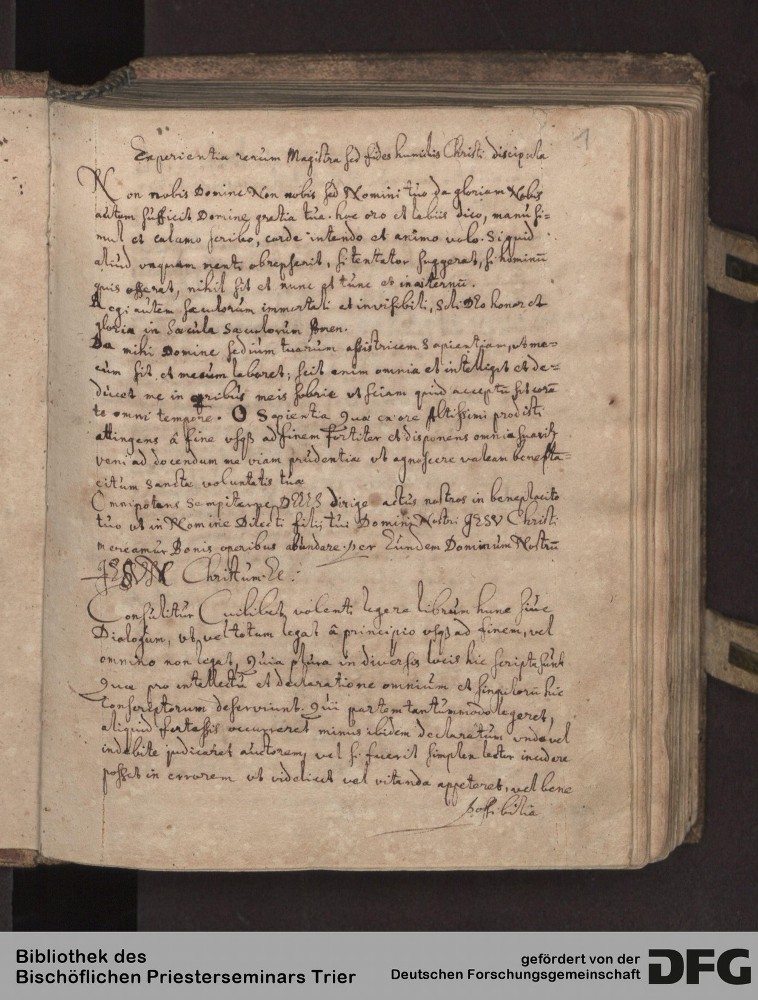 1
Experientia rerum Magistra sed fides humilis Christi discipula
Non nobis Domine Non nobis sed Nomini tuo da gloriam Nobis
autem sufficit Domine gratia tua. hoc oro et labiis dico, manu si=
mul et calamo scribo, corde intendo et animo volo. Si quid
aliud unquam menti obrepserit, si tentator suggerat, si hominū
quis offerat, nihil sit et nunc pt tunc et in æternū.
Regi autem sæculorum immortali et invisibili, Soli Deo honor et
gloria in Sæcula Sæculorum Amen.
Da mihi Domine sedium tuarum assistricem Sapientiam, ut me=
cum sit et mecum laboret; scit enim omnia et intelligit et de=
ducet me in operibus meis sobrie ut sciam quid acceptū sit corā
te omni tempore. O Sapientia Quæ ex ore Altissimi prodisti
attingens â fine usqȝ ad finem fortiter et disponens omnia suavitȝ
veni ad docendum me viam prudentiæ ut agnoscere valeam benepla=
citum Sanctæ voluntatis tuæ
Omnipotens Sempiterne DEUS dirige actus nostros in beneplacito
tuo ut in Nomine Dilecti filij tui Domini Nostri JESV Christi
mereamur Bonis operibus abundare. per Eundem Dominum Nostrū
JESVM Christum &c:
Consulitur Cuilibet volenti legere librum hunc sive
Dialogum, ut vel totum legat â principio usqȝ ad finem, vel
omnino non legat, Quia plura in diversis locis hic scripta sunt
Quæ pro intellectu et declaratione omnium et singulorū hic
Conscriptorum deserviunt. Qui partem tantummodo legeret,
aliquid fortassis occurreret minus ibidem declaratum unde vel
indebite judicaret auctorem, vel si fuerit simplex lector incidere
posset in errorem ut videlicet vel vitanda appeteret, vel bene
possibilia
Bibliothek des
Bischöflichen Priesterseminars Trier
gefördert von der
Deutschen Forschungsgemeinschaft
DFG